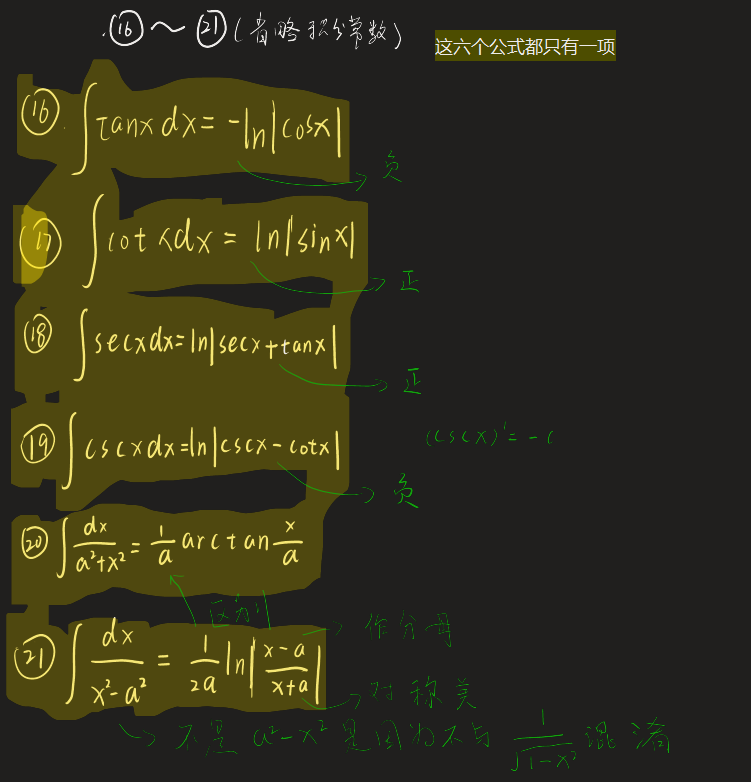 ⑯～㉑(省略积分常数)
这六个公式都只有一项
⑯ ∫tanx dx = -ln|cosx|
负
⑰ ∫cotxdx = ln|sinx|
正
⑱ ∫secxdx=ln|secx+tanx|
正
⑲ ∫cscxdx=ln|cscx-cotx|
(cscx)'=-c
负
⑳ ∫dx/(a²+x²) = 1/a arctan x/a
区别
作分母
㉑ ∫dx/(x²-a²) = 1/2a ln|(x-a)/(x+a)|
对称美
不是 a²-x² 是因为不与 1/√(1-x²) 混淆